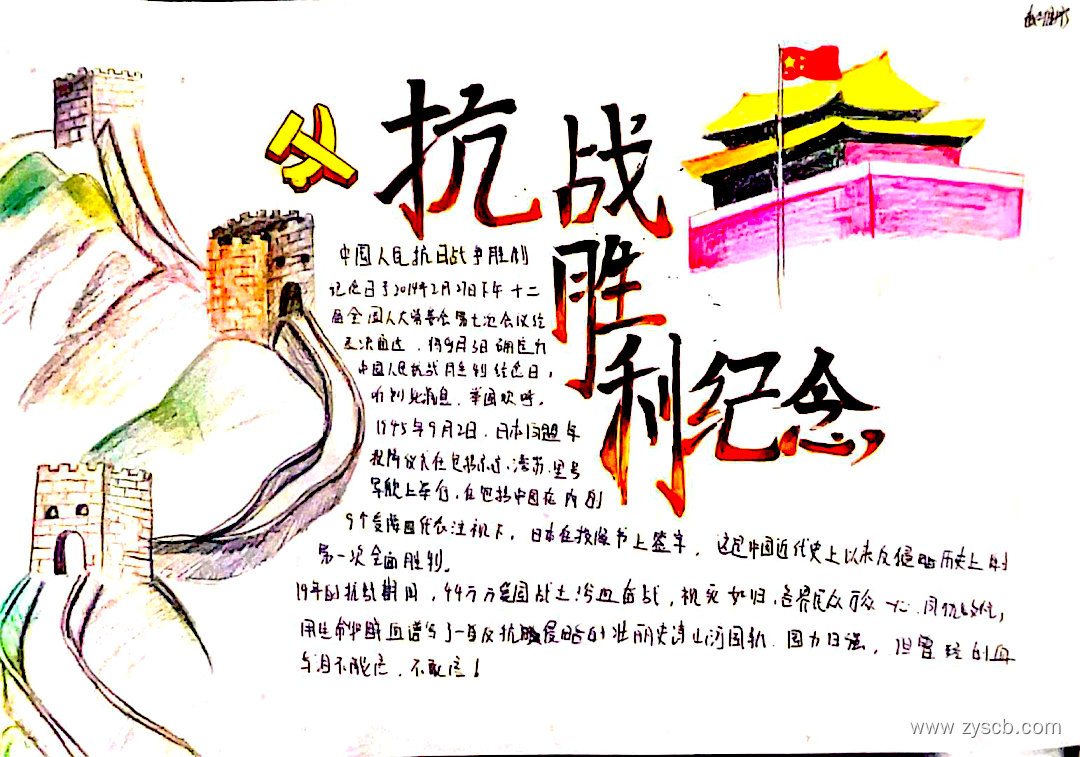 抗战
胜
利纪念
中国人民抗日战争胜利
纪念日于2014年2月27日下午十二
届全国人大常委会第七次会议经
表决通过,将9月3日确定为
中国人民抗战胜利纪念日,
听到此消息,举国欢呼。
1945年9月2日,日本向盟军
投降仪式在
号
军舰上举行,在包括中国在内的
9个受降国代表注视下,日本在投降书上签字。这是中国近代史上以来反侵略历史上的
第一次全面胜利。
14年的抗战期间,
战士浴血奋战,视死如归,各界民众万众一心,同仇敌忾,
用生命和鲜血谱写了一首反抗侵略的壮丽史诗山河国
国力日强,但
的血
与泪不能忘,不敢忘!
www.zyscb.com